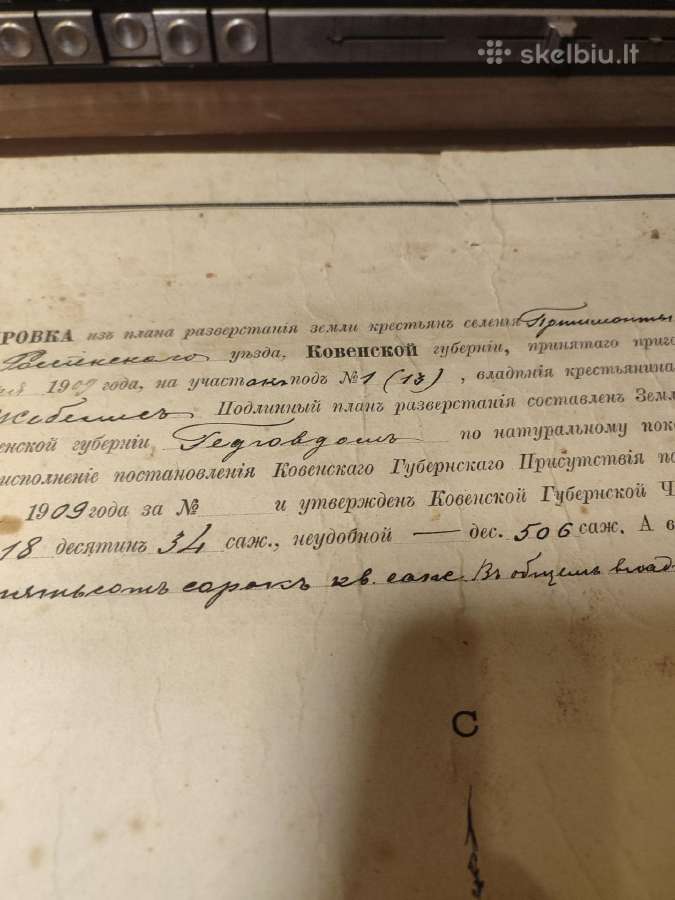 skelbiu.lt
РОВКА изъ плана разверстанія земли крестьянъ селенія
уѣзда, Ковенской губерніи, принятаго приго
1909 года, на участокъ подъ №1 (13), владѣнія крестьянина
Подлинный планъ разверстанія составленъ Зем
енской губерніи Гедговдомъ по натуральному пок
исполненіе постановленія Ковенскаго Губернскаго Присутствія по
1909 года за № и утвержденъ Ковенской Губернской Ч
18 десятинъ 34 саж., неудобной — дес. 506 саж. А в
пятьсотъ сорокъ кв. саж. Въ общемъ влад
С